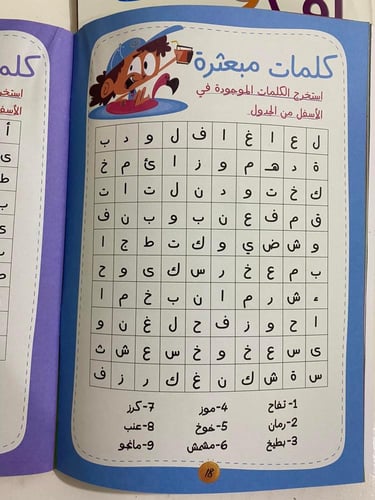 كلمات مبعثرة
استخرج الكلمات الموجودة في
الأسفل من الجدول
ل ع ا غ ا ف ل و د ب
ة د هـ م و ز ا ئ م خ
ك خ ت و د ن ل ت ا ت
ق م ف ع ن ب و ب ن ف
و ش ض ي و ك ت ط ج ا
ب م ع خ ر س ك ى و ح
ء ش ر م ا ن ب خ م ا
ا ح و ز ف ح ل غ ن و
ى س ع خ و خ س ع ش ث
س ة ش ك ن غ ك ر ز ف
1- تفاح 4- موز 7- كرز
2- رمان 5- خوخ 8- عنب
3- بطيخ 6- مشمش 9- مانجو
18